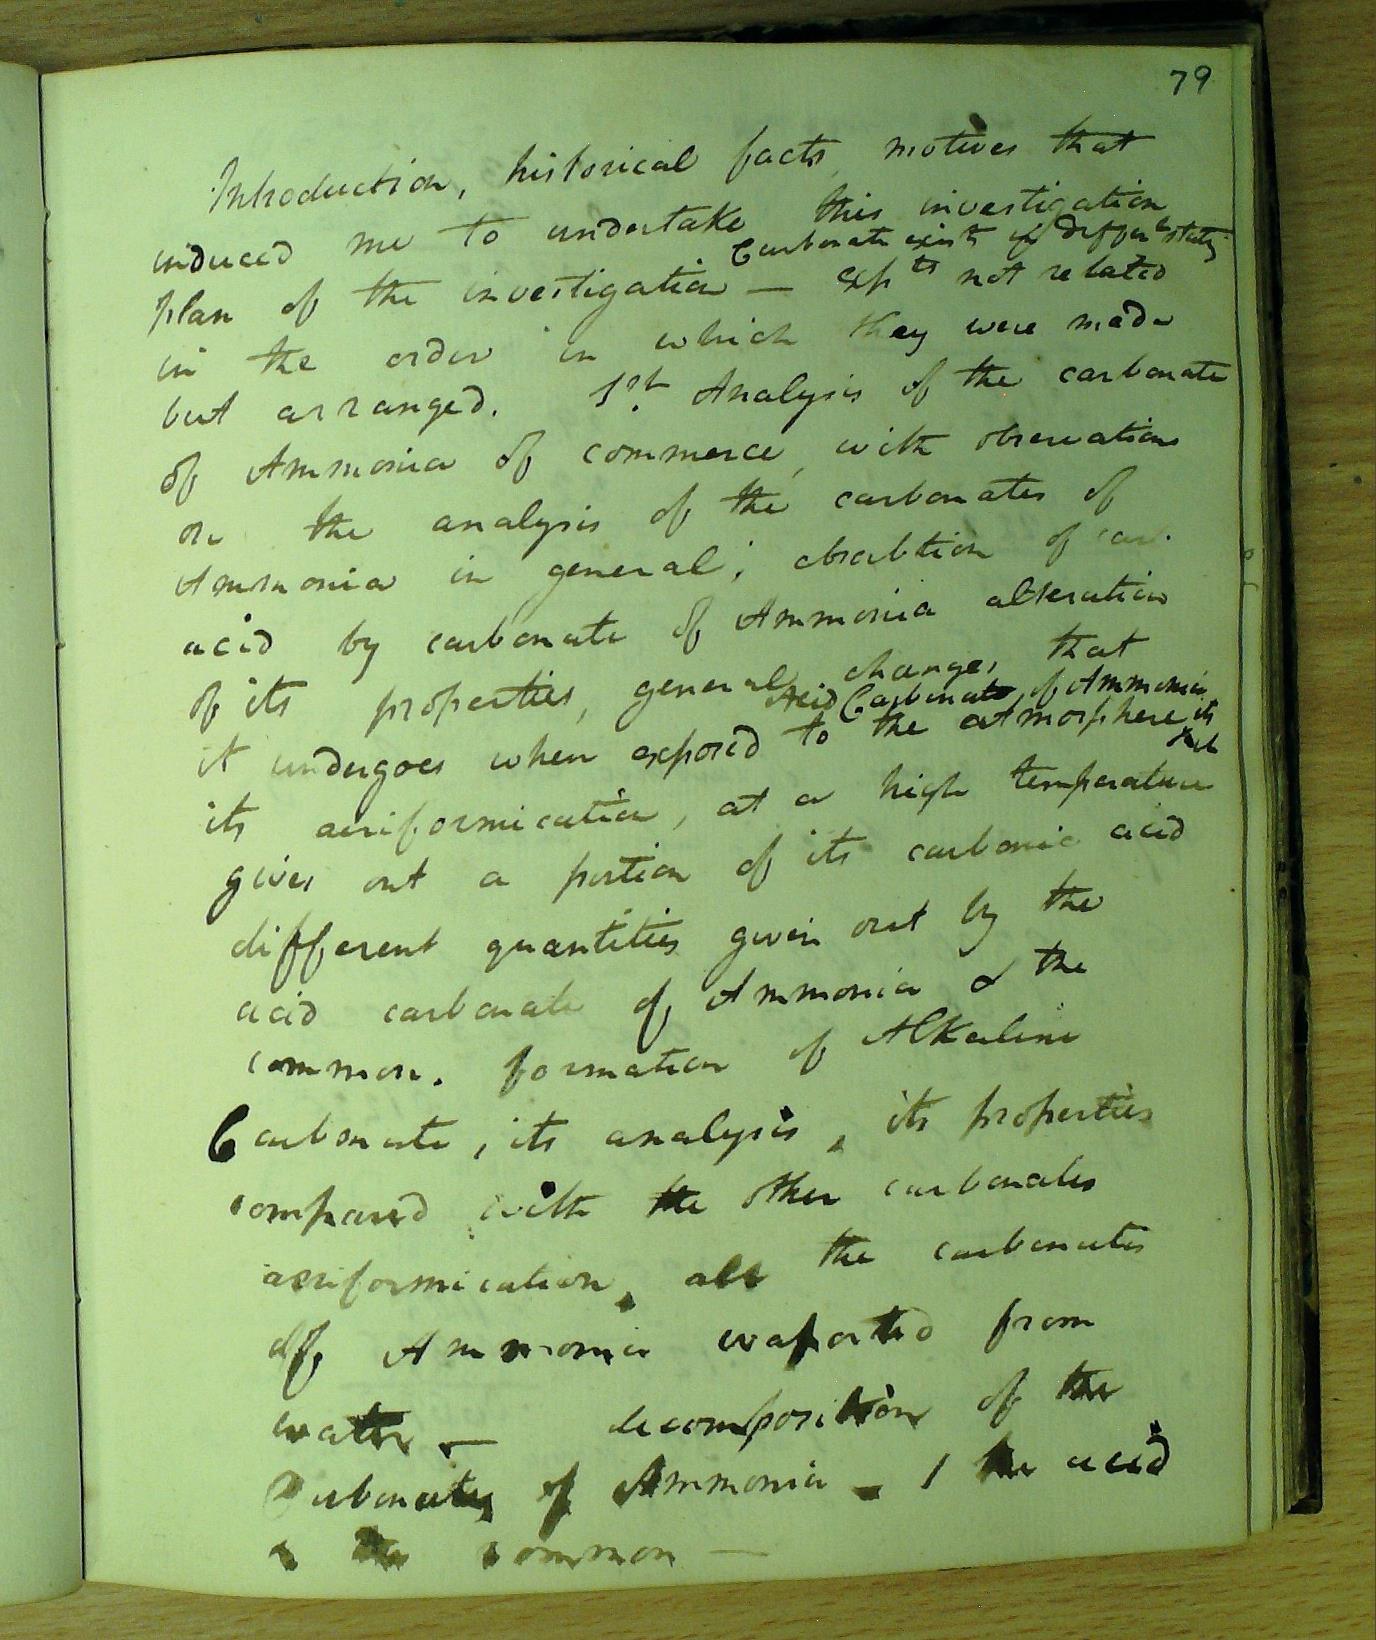 79
Introduction, historical facts, motives that
induced me to undertake this investigation
Carbonate exists in different states
plan of the investigation — expts not related
in the order in which they were made
but arranged. 1st. Analysis of the carbonate
of Ammonia of commerce, with observations
on the analysis of the carbonates of
Ammonia in general; absorbtion of car.
acid by carbonate of Ammonia alteration
of its properties, general changes that
Acid Carbonate of Ammonia its
it undergoes when exposed to the atmosphere
its aeriformication, at a high temperature
gives out a portion of its carbonic acid
different quantities given out by the
acid carbonate of Ammonia & the
common. formation of Alkaline
Carbonate, its analysis, its properties
compared with the other carbonates
aeriformication, all the carbonates
of Ammonia evaporated from
water — decomposition of the
Carbonates of Ammonia - 1 the acid
common —